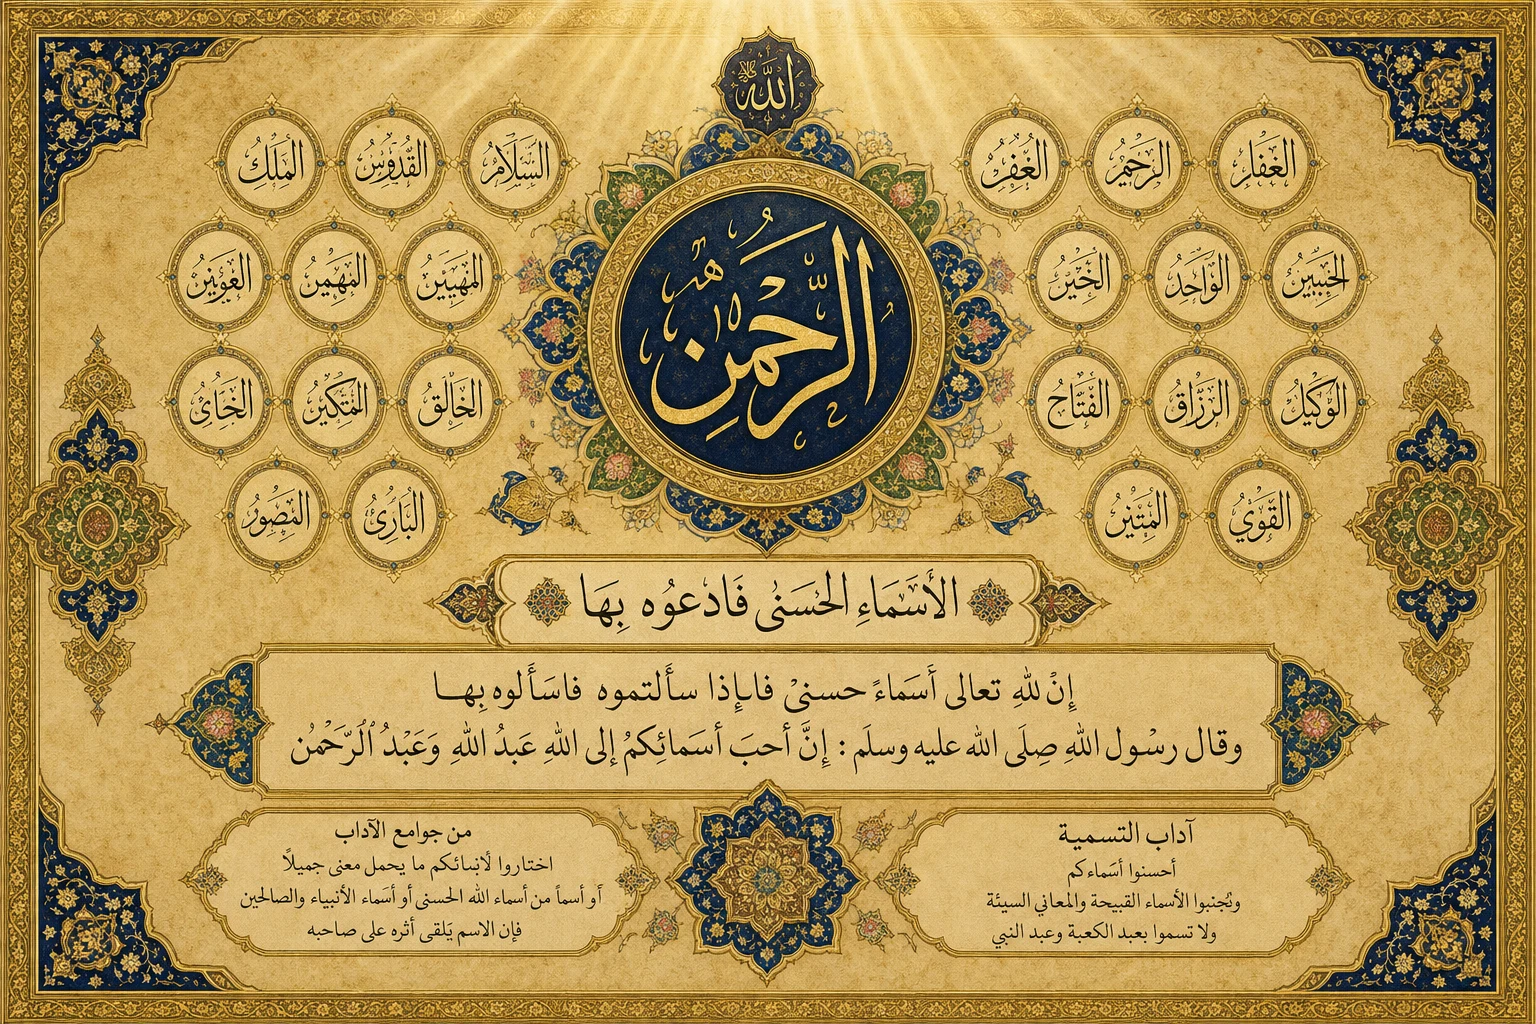 الله
الرحمن
السلام
القدوس
الملك
الغفار
الرحيم
الواحد
الخالق
الوكيل
الرزاق
الفتاح
البارئ
القوي
الأَسَمَاءِ الحُسَنٰى فَادعوُه بِهَا
إِنْ للهِ تعالى أَسَمَاءً حسنىْ فابإِذا سأَلتموه فاسَأَلوه بِها
وقال رسْول اللهِ صِلَى الله عليه وسلَم : إِنَّ أحبَ أسَمائِكمُ إلى اللهِ عَبدُ اللهِ وَعَبْدُ ٱلرَّحَمْن
آداب التسمية
أحسنوا أسَماءكم
وتُجنبوا الأسماء القبيحة والمعاني السيئة
ولا تسموا بعبد الكعبة وعبد النبي
من جوامع الآداب
اختاروا لأبنائكم ما يحمل معنى جميلاً
أو أسماً من أسماء الله الحسنى أو أسَماء الأنبياء والصالحين
فإن الاسم يَلقى أثره على صاحبه